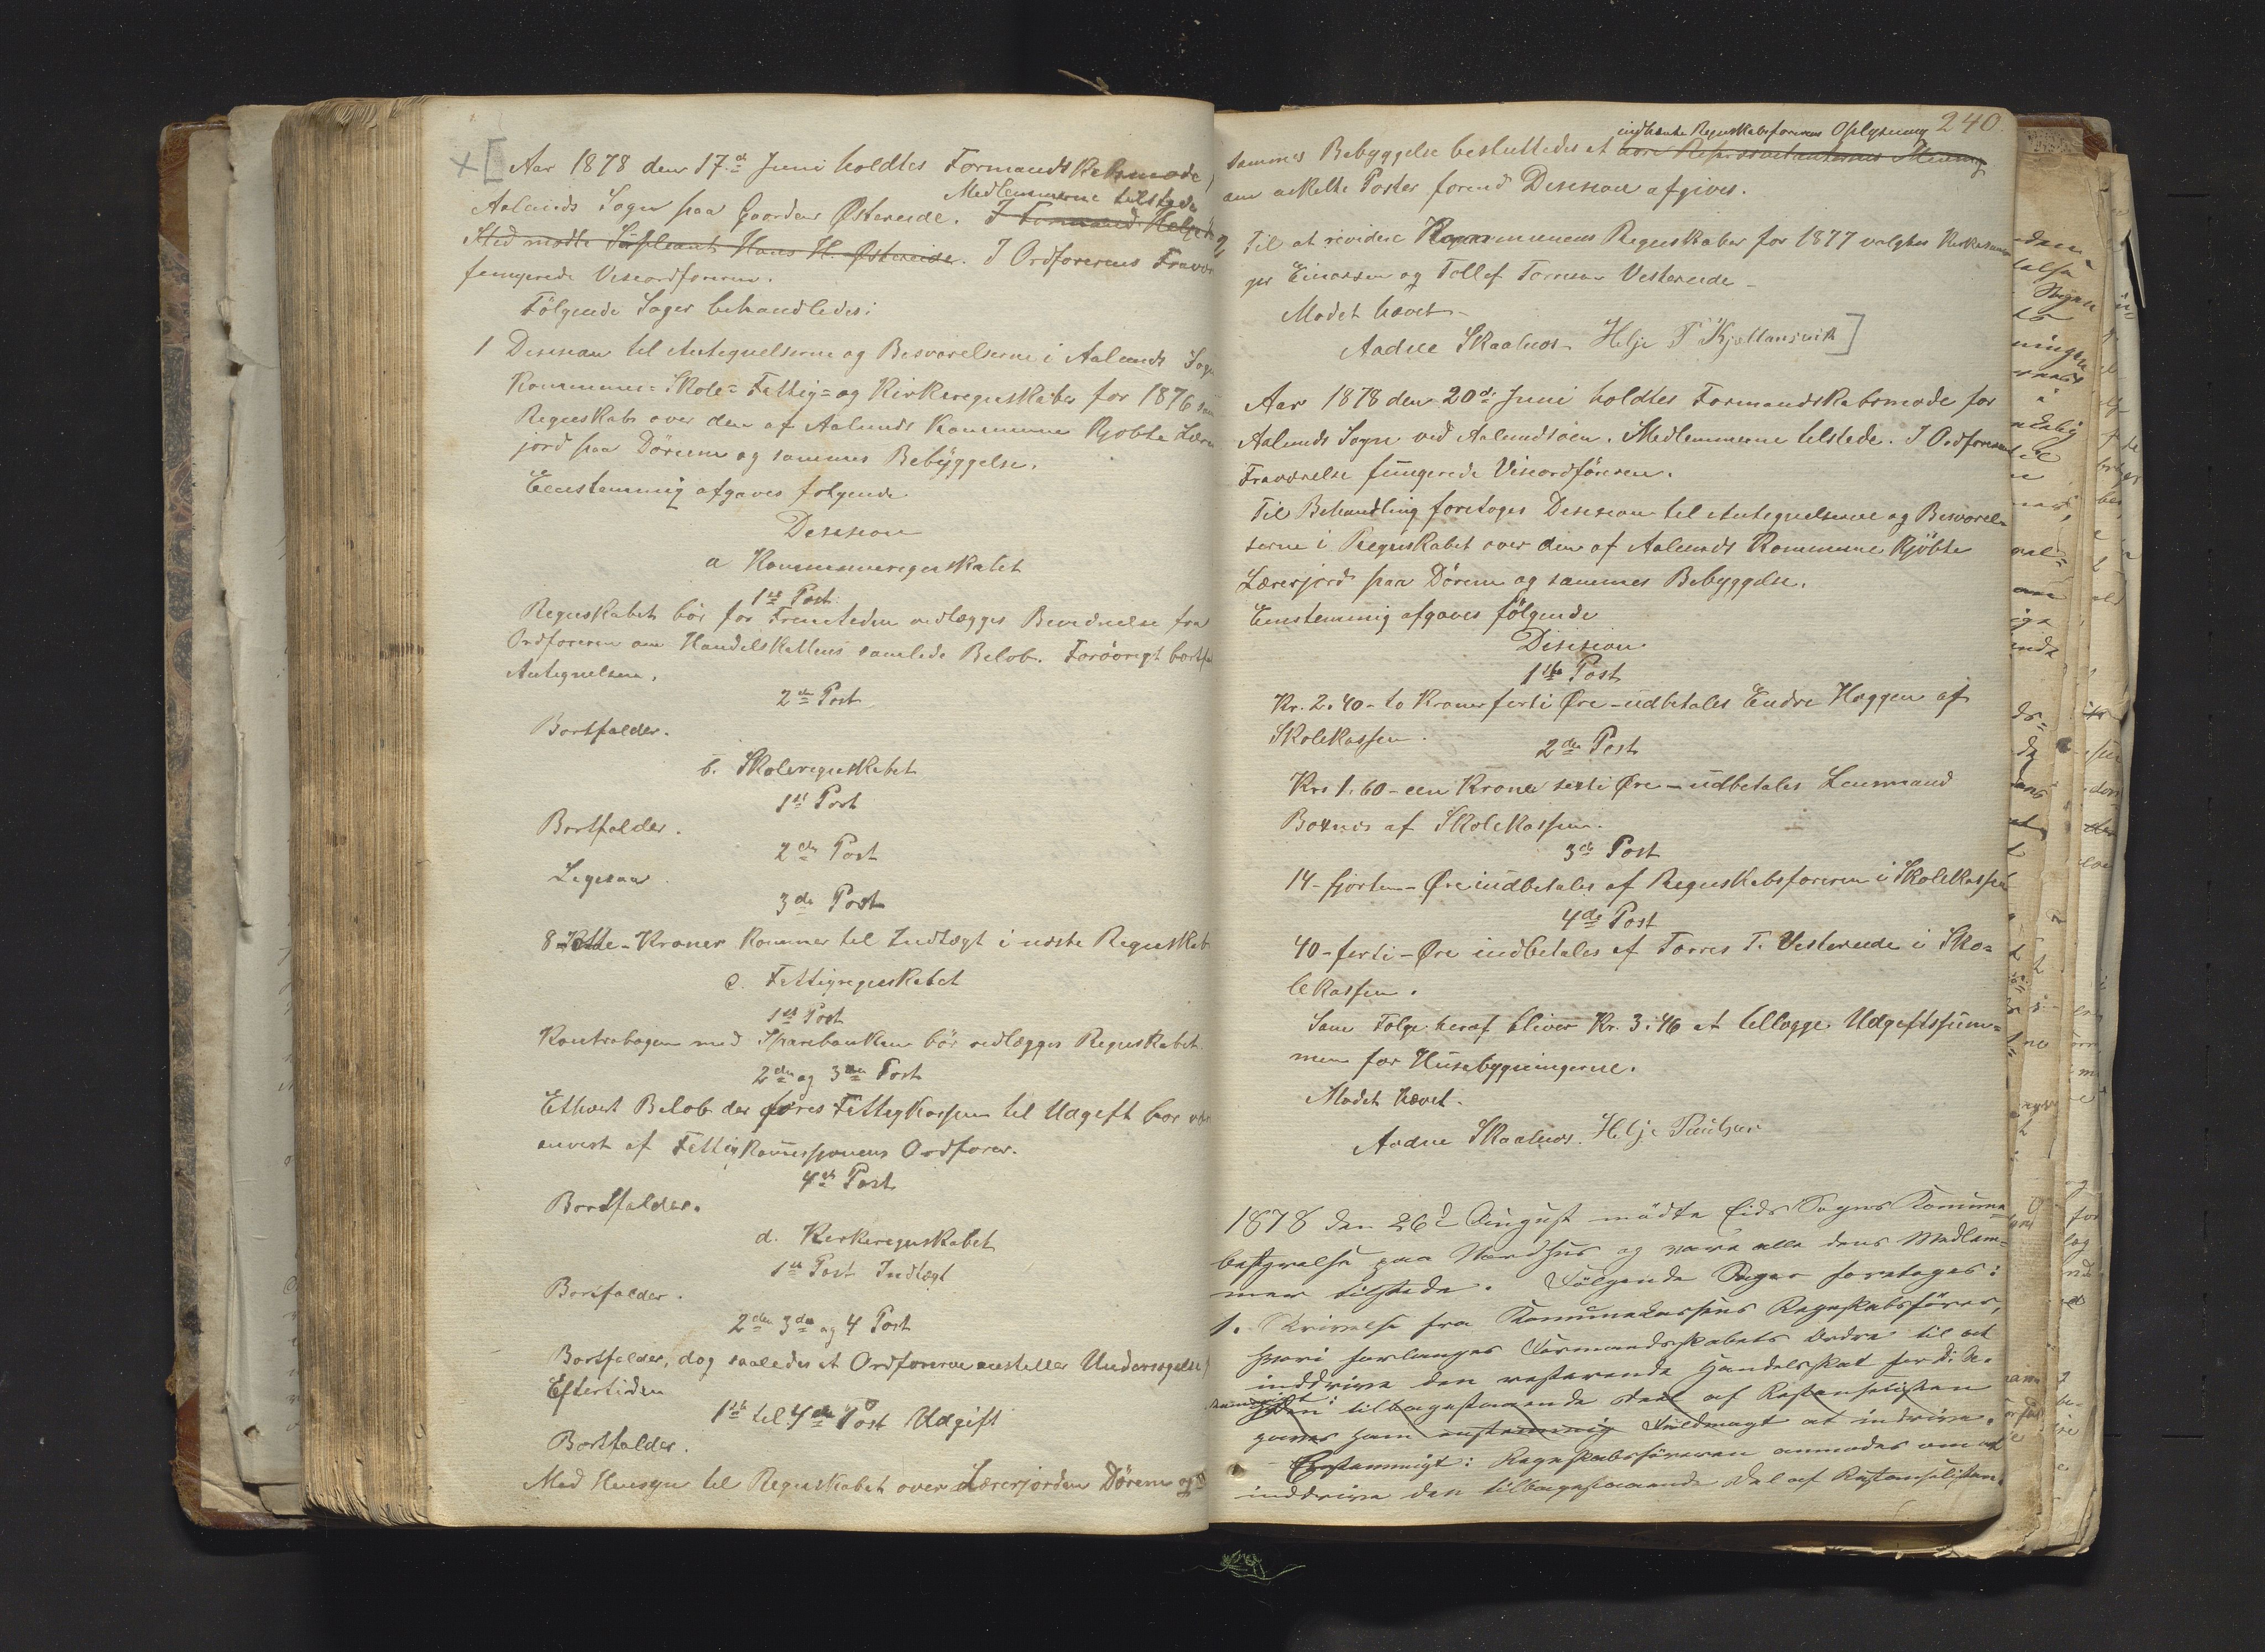 Aar 1878 den 17de Juni holdtes Formandskabsmøde
Medlemmerne tilstede
Aalunds Sogn paa Gaarden Østereide. I Formand Helje
Sted mødte Supleant Hans H. Østereide. I Ordførerens Fravær
fungerede Viseordføreren.
Følgende Sager behandledes:
1 Desision til Antegnelserne og Besvarelserne i Aalunds Sogn
Kommune- Skole- Fattig- og Kirkeregnskaber for 1876
Regnskabs over den af Aalunds Kommune Kjøbte Lærer
jord paa Dørum og sammes Bebyggelse.
Eenstemmig afgaves følgende
Desision
a Kommuneregnskabet
1ste Post
Regnskabet bør for Fremtiden vedlægges Bevidnelse fra
Ordføreren om Handelskattens samlede Beløb. Forøvrigt bortfa
Antegnelsen.
2den Post
Bortfalder.
b. Skoleregnskabet
1ste Post
Bortfalder.
2den Post
Ligesaa
3die Post
8-Otte-Kroner kommer til Indtægt i næste Regnskab
c. Fattigregnskabet
1ste Post
Kontrabogen med Sparebanken bør vedlægges Regnskabet.
2den og 3die Post
Ethvert Beløb der føres Fattigkassen til Udgift bør være
anvist af Fattigkommissjonens Ordfører.
4de Post
Bortfalder.
d. Kirkeregnskabet
1ste Post Indtægt
Bortfalder.
2den 3die og 4 Post
Bortfalder, dog saaledes at Ordførerne anstiller Undersøgelse
Eftertiden
1ste til 4de Post Udgift
Bortfalder.
Med Hensyn til Regnskabet over Lærerjorden Dørum og
240.
indhente Regnskabsførerens Oplysning
sammes Bebyggelse besluttedes at høre Mening
om enkelte Poster forend Desision afgives.
2, Til at revidere Kommunens Regnskaber for 1877 valgtes
ger Einarsen og Tollef Torresen Vestereide -
Mødet hævet -
Aadne Skaalnes Helje T Kjellansvik
Aar 1878 den 20de Juni holdtes Formandskabsmøde for
Aalunds Sogn ved Aalundsøen. Medlemmerne tilstede. I Ordførerens
Fraværelse fungerede Viseordføreren.
Til Behandling foretoges Desision til Antegnelserne og Besvarel-
serne i Regnskabet over den af Aalunds Kommune Kjøbte
Lærerjord paa Dørum og sammes Bebyggelse.
Eenstemmig afgaves følgende
Disision
1ste Post
Kr. 2.40 - to Kroner førti Øre - udbetales Endre Haggen af
Skolekassen.
2den Post
Kr. 1.60 - een Krone sexti Øre - udbetales Lensmand
Boxnes af Skolekassen.
3die Post
14 - fjorten - Øre indbetales af Regnskabsføreren i Skolekassen
4de Post
40 - førti - Øre indbetales af Torres T. Vestereide i Sko-
lekassen.
Som Følge heraf bliver Kr. 3.46 at tillægge Udgiftssum-
men for Husebygningerne.
Mødet hævet.
Aadne Skaalnes. Helje Paulsen
1878 den 26d August mødte Eids Sogns Komune-
bestyrelse paa Nordhus og vare alle dens Medlem-
mer tilstede. Følgende Sager foretoges:
1. Skrivelse fra Komunekassens Regnskabsfører,
hvori forlanges Formandsskabets Ordre til at
inddrive den resterende Handelsskat for
Den tilbagestaaende Deel af Restanselisten
gaves ham enstemmig Fuldmagt at indrive.
Enstemmigt: Regnskabsføreren anmodes om at
inddrive den tilbagestaaende Del af Restanselisten.